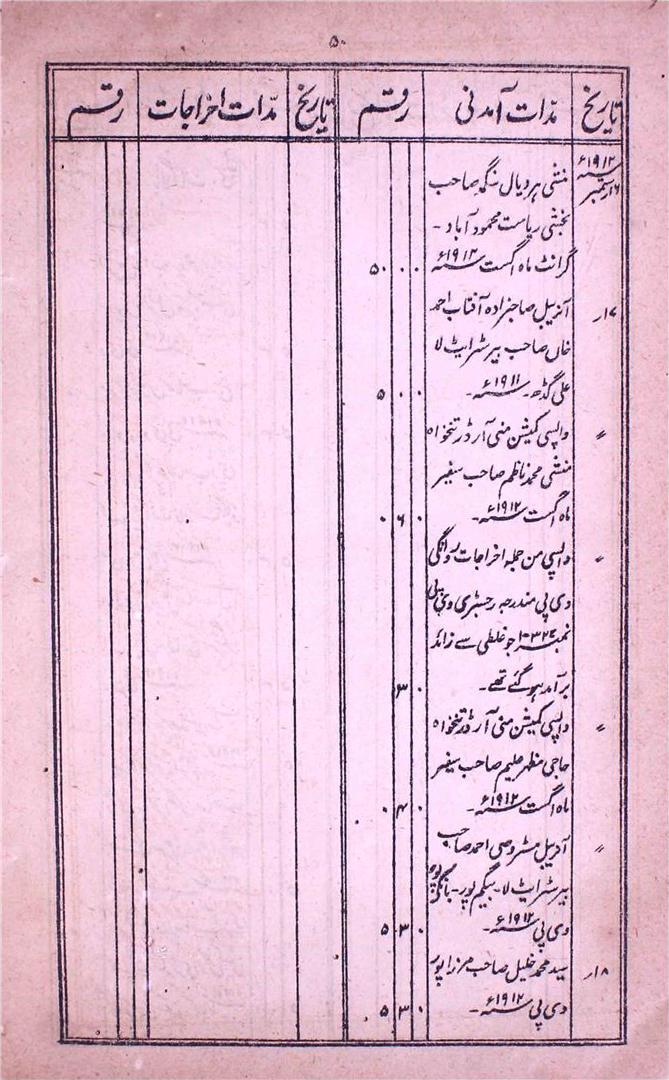 ۵۰
تاریخ مدّات آمدنی رقم تاریخ مدّات اخراجات رقم
۱۶ستمبر ۱۹۱۲ء منشی ہردیال سنگہ صاحب
بخشی ریاست محمود آباد -
گرانٹ ماہ اگست سنہ ۱۹۱۲ء ۵۰ ۰ ۰
۱۷ر آنریبل صاحبزادہ آفتاب احمد
خاں صاحب بیرسٹرایٹ لا
علی گڈھ۔ سنہ ۱۹۱۱ء۔ ۵ ۰ ۰
〃 واپسی کمیشن منی آرڈر تنخواہ
منشی محمد ناظم صاحب سفیر
ماہ اگست سنہ ۱۹۱۲ء۔ ۰ ۶ ۰
〃 واپسی من جملہ اخراجات روانگی
وی پی مندرجہ رجسٹری وی پی
نمبر جو غلطی سے زائد
برآمد ہوگئے تھے۔ ۳ ۰
〃 واپسی کمیشن منی آرڈر تنخواہ
حاجی مظہر علیم صاحب سفیر
ماہ اگست سنہ ۱۹۱۲ء۔ ۰ ۴ ۰
〃 آنریبل مسٹر وصی احمد صاحب
بیرسٹرایٹ لا۔ بیگم پور۔ بانکی پور
وی پی سنہ ۱۹۱۲ء۔ ۵ ۳ ۰
۱۸ر سید محمد خلیل صاحب مرزا پور
وی پی سنہ ۱۹۱۲ء۔ ۵ ۳ ۰